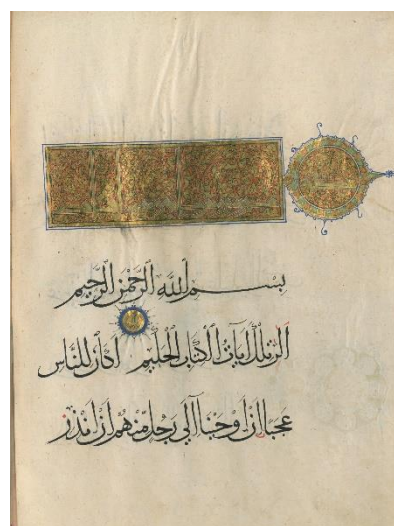 بِسْمِ اللَّهِ الرَّحْمَنِ الرَّحِيمِ
الر تِلْكَ آيَاتُ الْكِتَابِ الْحَكِيمِ أَكَانَ لِلنَّاسِ
عَجَبًا أَنْ أَوْحَيْنَا إِلَى رَجُلٍ مِنْهُمْ أَنْ أَنْذِرِ